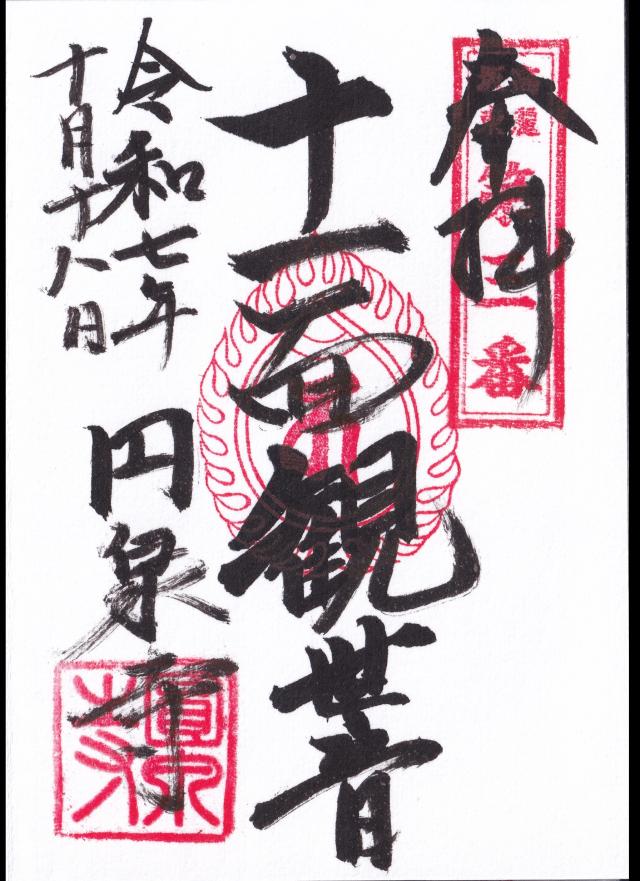 奉拝
第三番
十一面観世音
令和七年
十月十八日
円泉寺